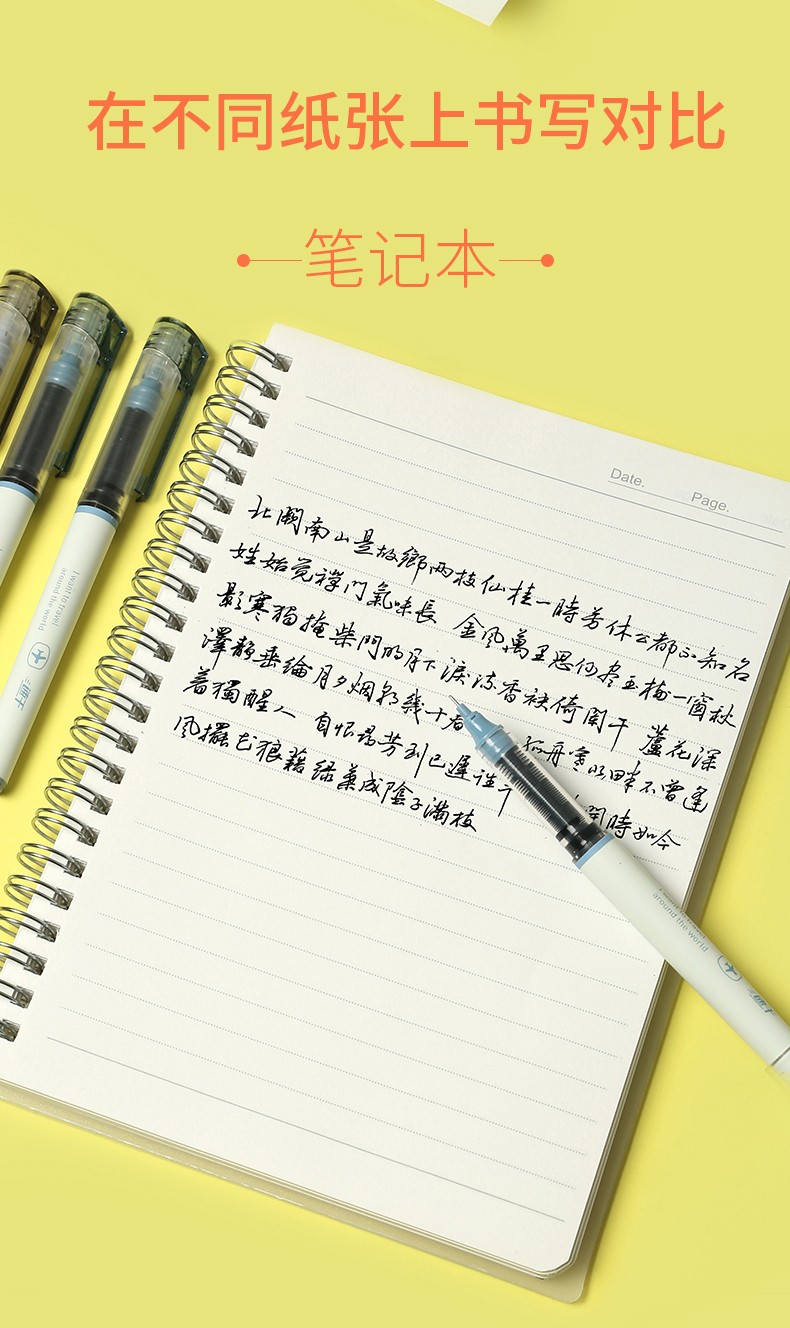 在不同纸张上书写对比
笔记本
Date.
Page.
北闕南山是故鄉两枝仙桂一時芳休公都不知名
姓始觉禪門氣味長 金風萬里思何盡玉樹一窗秋
影寒獨掩柴門明月下淚流香袂倚闌干 蘆花深
澤靜垂綸月夕烟朝幾十春 孤舟寒水畔不曾逢
着獨醒人 自恨尋芳到已遲往年 開時如今
風擺花狼藉绿葉成陰子滿枝
I want to travel
around the world
around the world